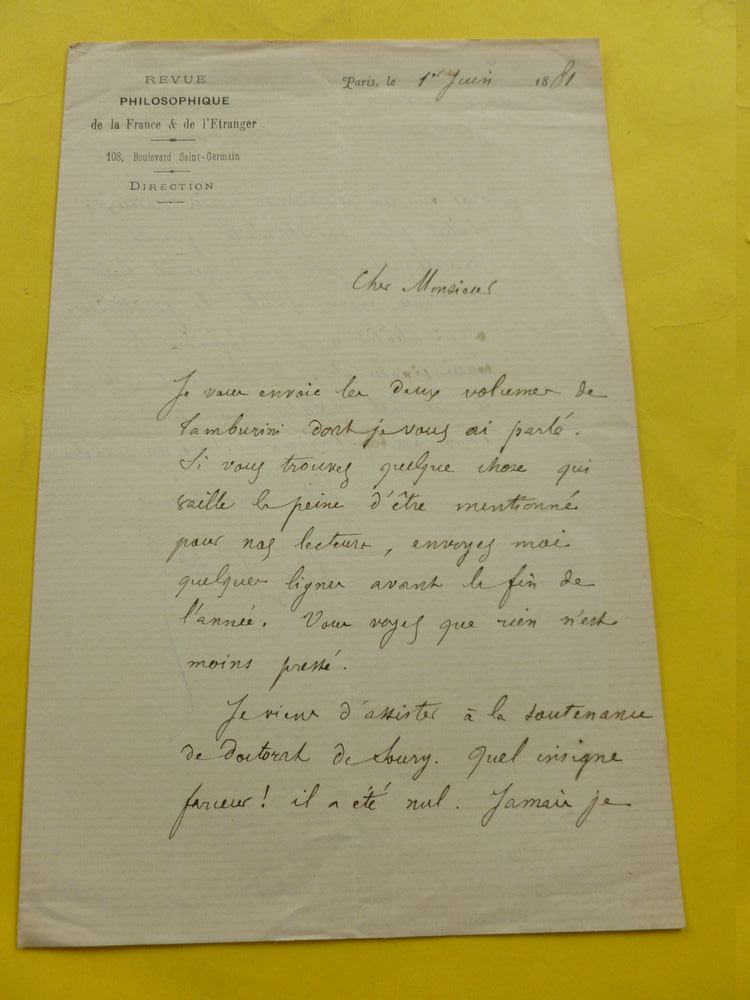 REVUE
PHILOSOPHIQUE
de la France & de l'Etranger
108, Boulevard Saint-Germain
DIRECTION
Paris, le 1er Juin 1881
Cher Monsieur
Je vous envoie les deux volumes de
Tamburini dont je vous ai parlé.
Si vous trouvez quelque chose qui
vaille la peine d'être mentionné
pour nos lecteurs, envoyez moi
quelques lignes avant la fin de
l'année. Vous voyez que rien n'est
moins pressé.
Je viens d'assister à la soutenance
de doctorat de Soury. Quel insigne
farceur! il a été nul. Jamais je